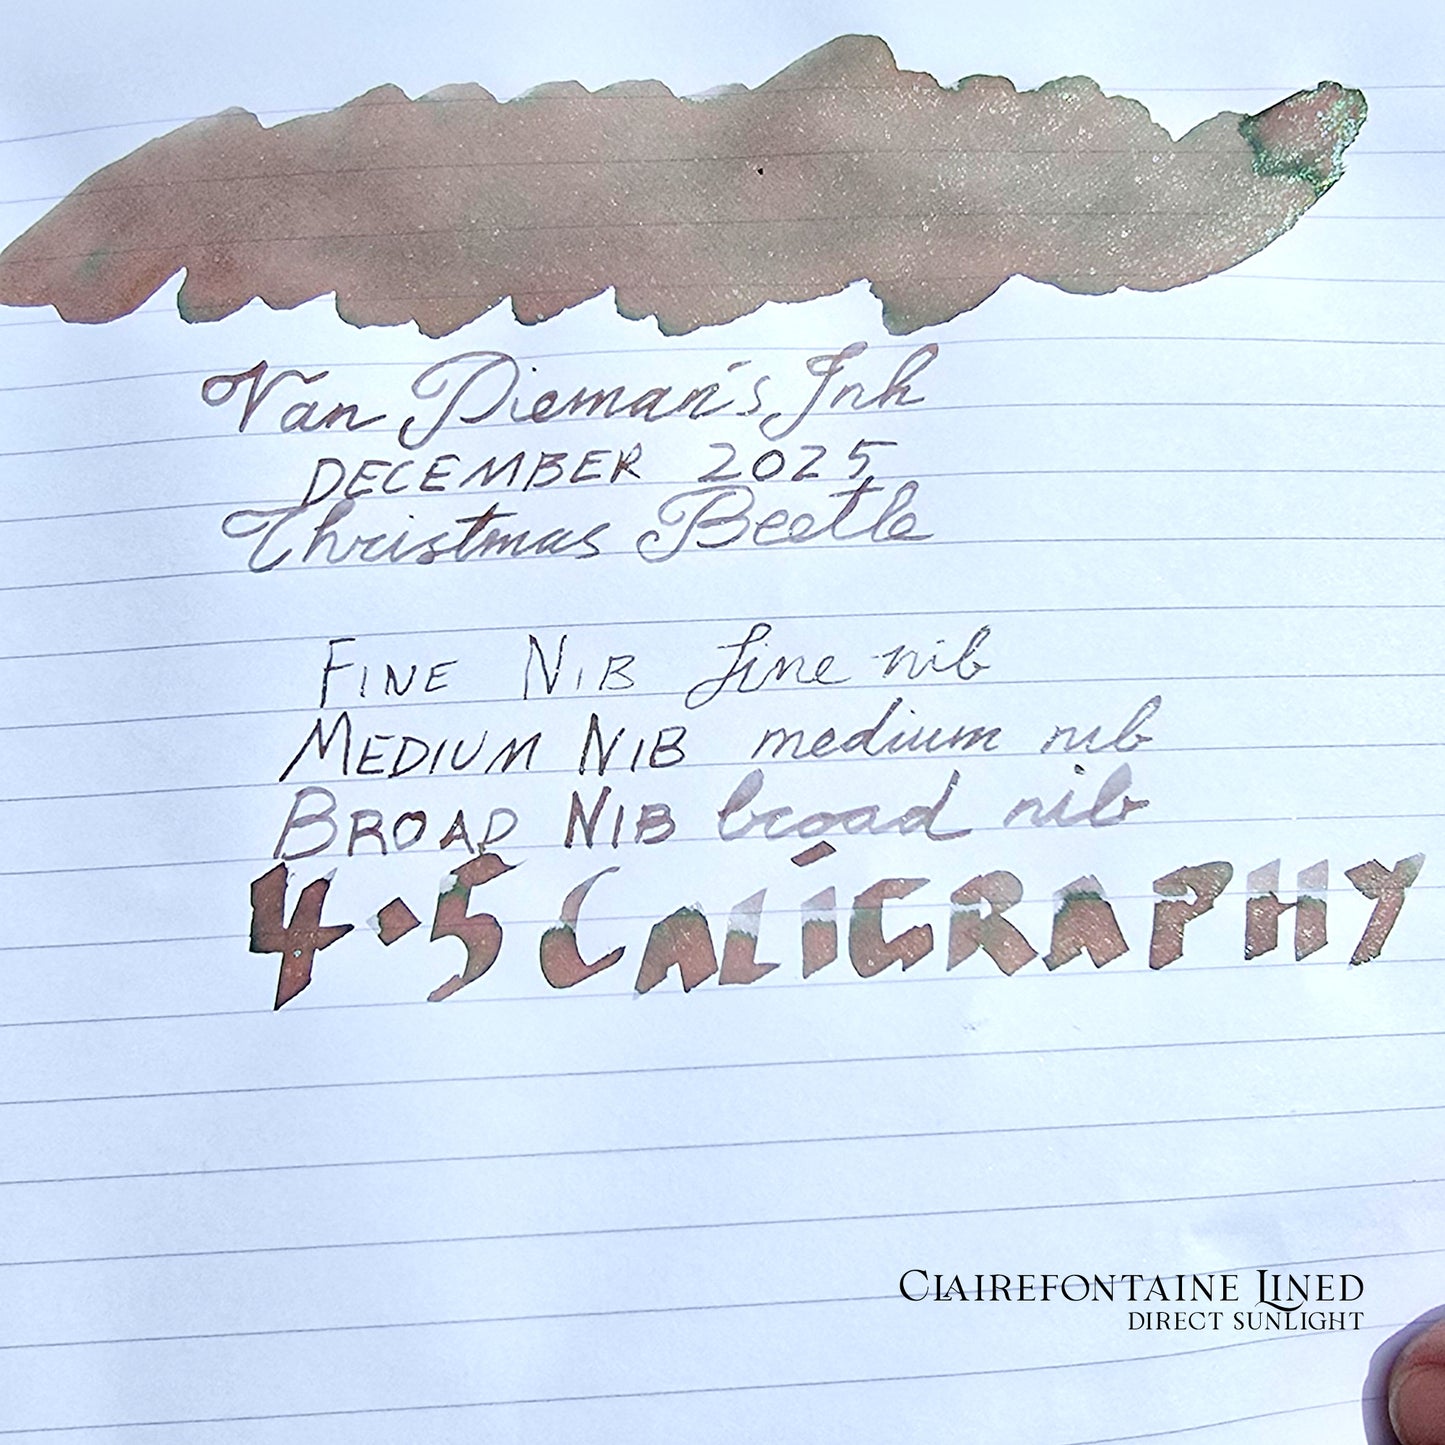 Van Dieman's Ink
DECEMBER 2025
Christmas Beetle
FINE NIB fine nib
MEDIUM NIB medium nib
BROAD NIB broad nib
4.5 CALIGRAPHY
CLAIREFONTAINE LINED
DIRECT SUNLIGHT